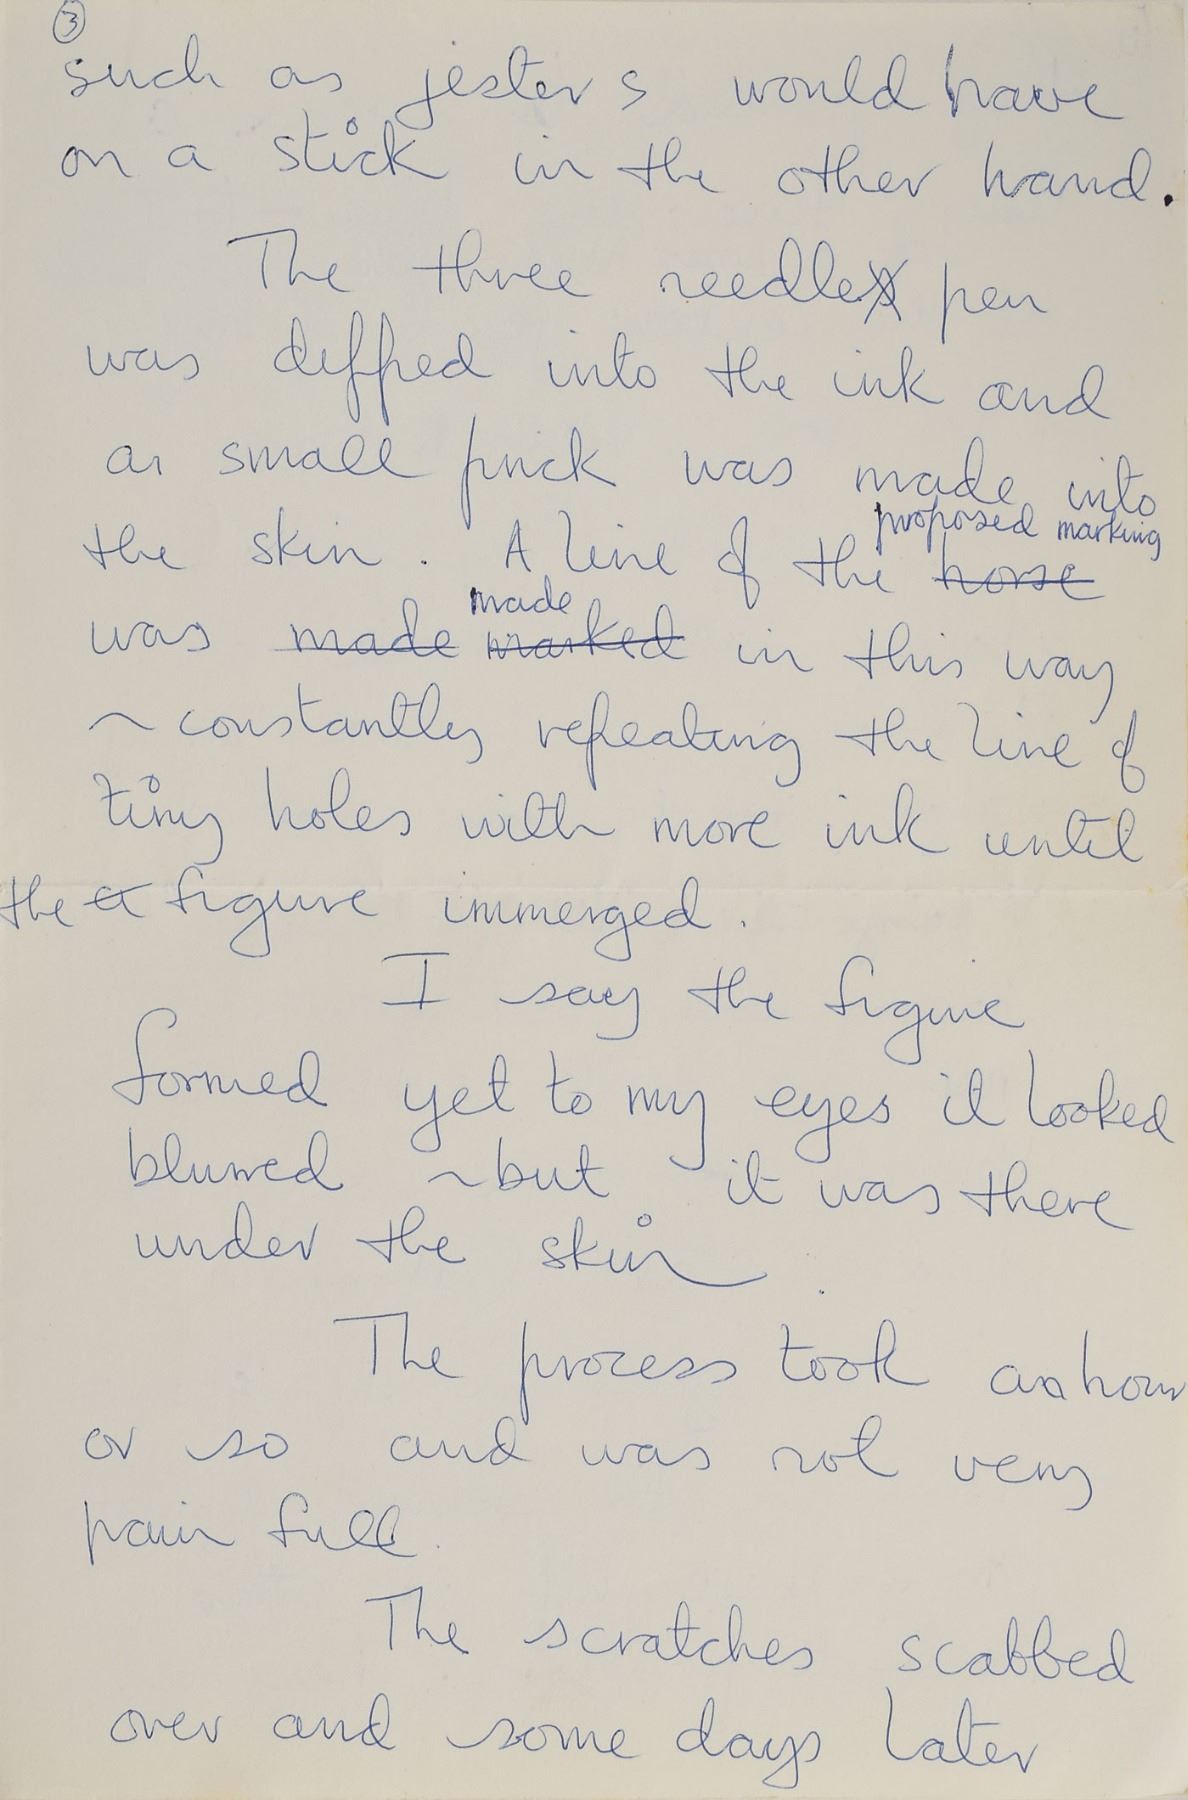 3
such as jesters would have
on a stick in the other hand.
The three needles pen
was deffed into the ink and
a small prick was made into
proposed marking
the skin. A line of the horse
made
was made marked in this way
~ constantly repeating the line of
tiny holes with more ink until
the a figure immerged.
I say the figure
formed yet to my eyes it looked
blurred ~ but it was there
under the skin.
The process took an hour
or so and was not very
pain full.
The scratches scabbed
over and some days later